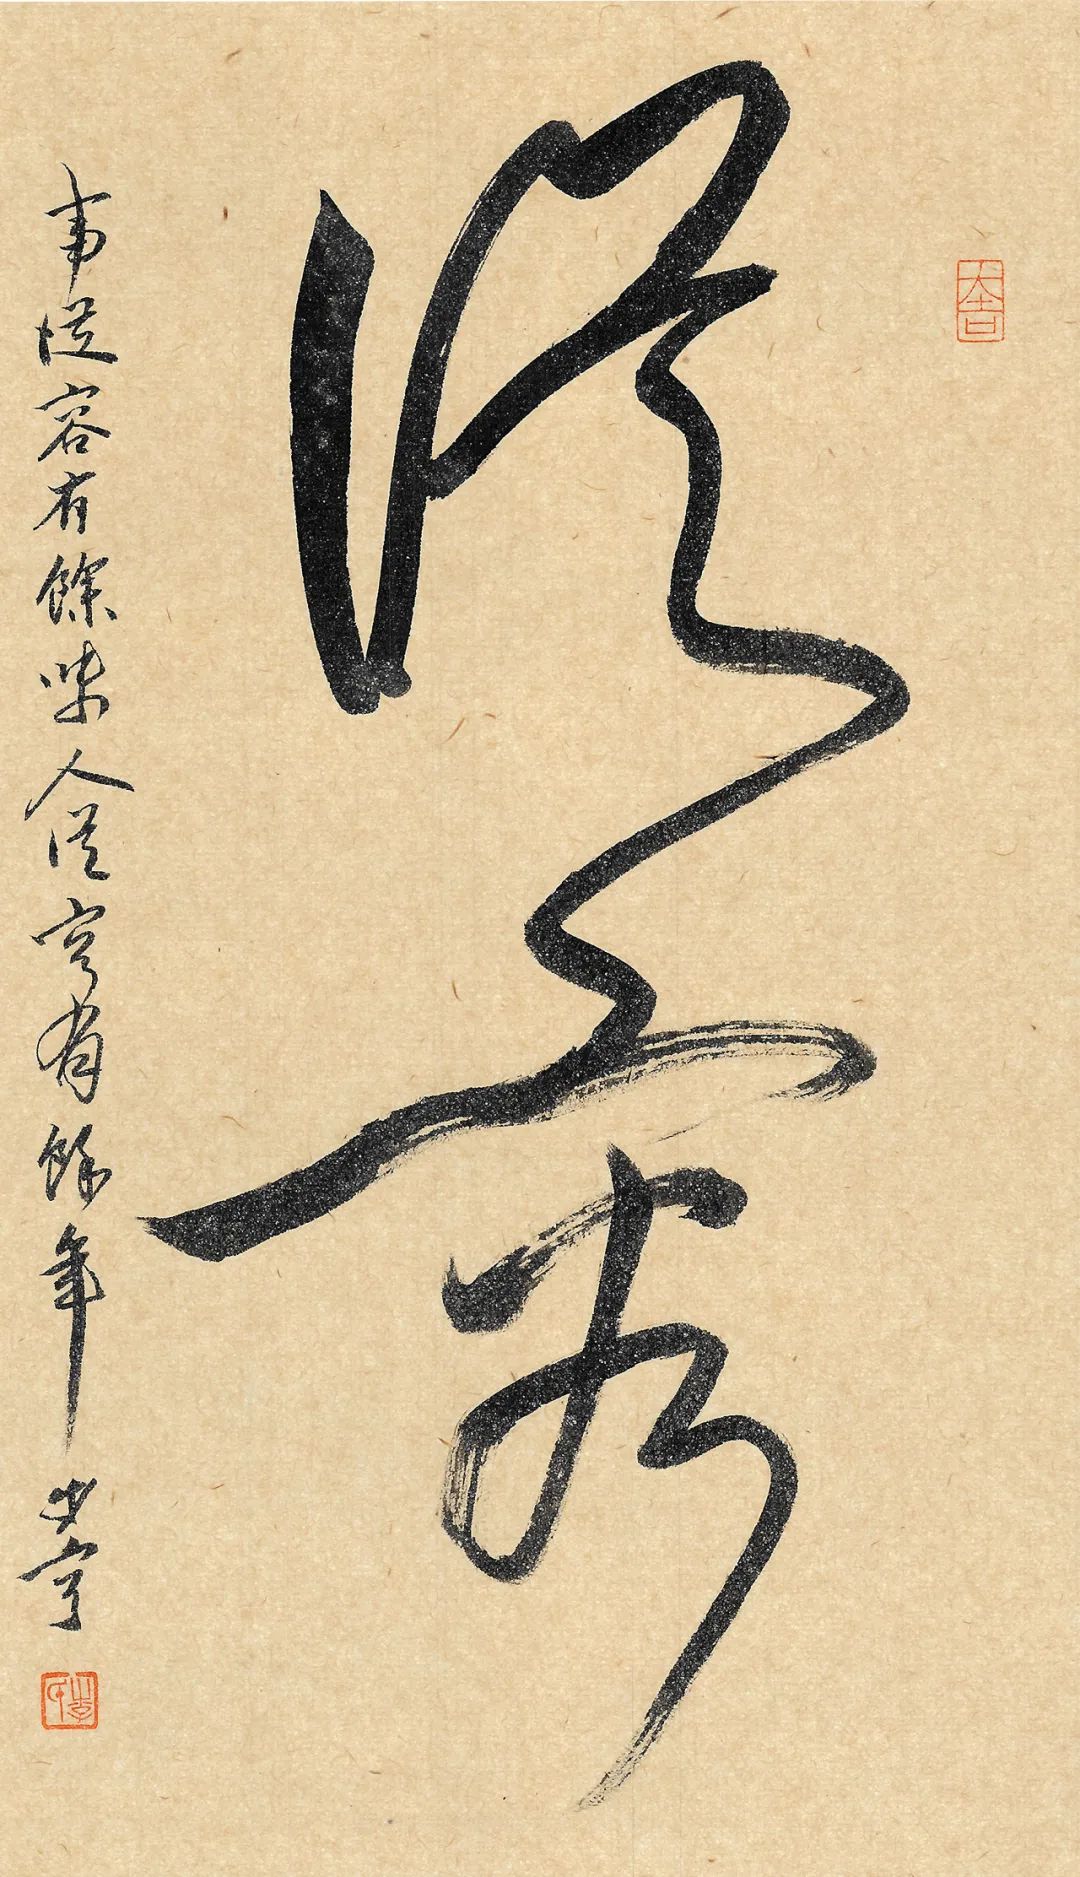 從容
事從容有餘味人從容有餘年